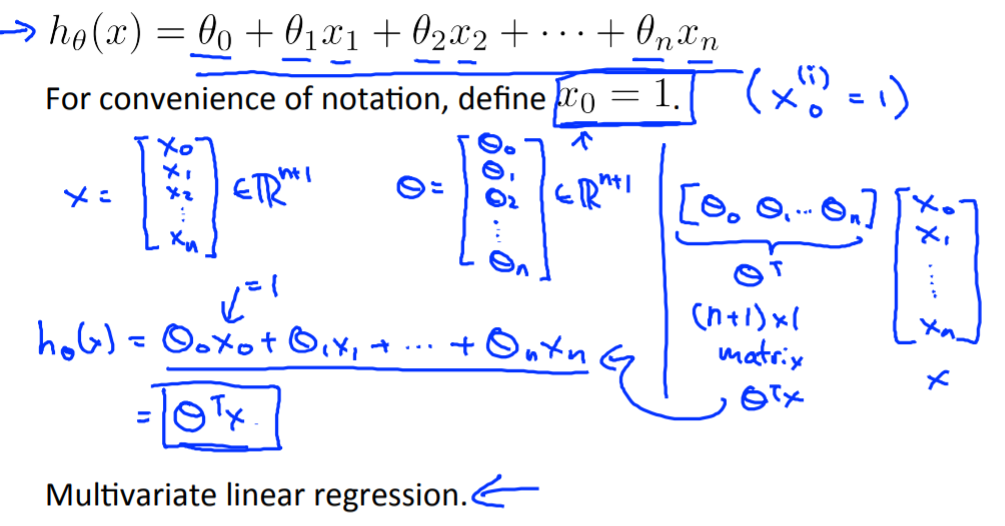 → hθ(x) = θ₀ + θ₁x₁ + θ₂x₂ + ⋯ + θₙxₙ
For convenience of notation, define x₀ = 1. (x₀⁽ⁱ⁾ = 1)
x = [x₀ x₁ x₂ ⋮ xₙ] ∈ ℝⁿ⁺¹
θ = [θ₀ θ₁ θ₂ ⋮ θₙ] ∈ ℝⁿ⁺¹
[θ₀ θ₁ ⋯ θₙ] [x₀ x₁ ⋮ xₙ]
θᵀ
(n+1)×1
matrix
x
θᵀx
= 1
hθ(x) = θ₀x₀ + θ₁x₁ + ⋯ + θₙxₙ
= θᵀx.
Multivariate linear regression. ←